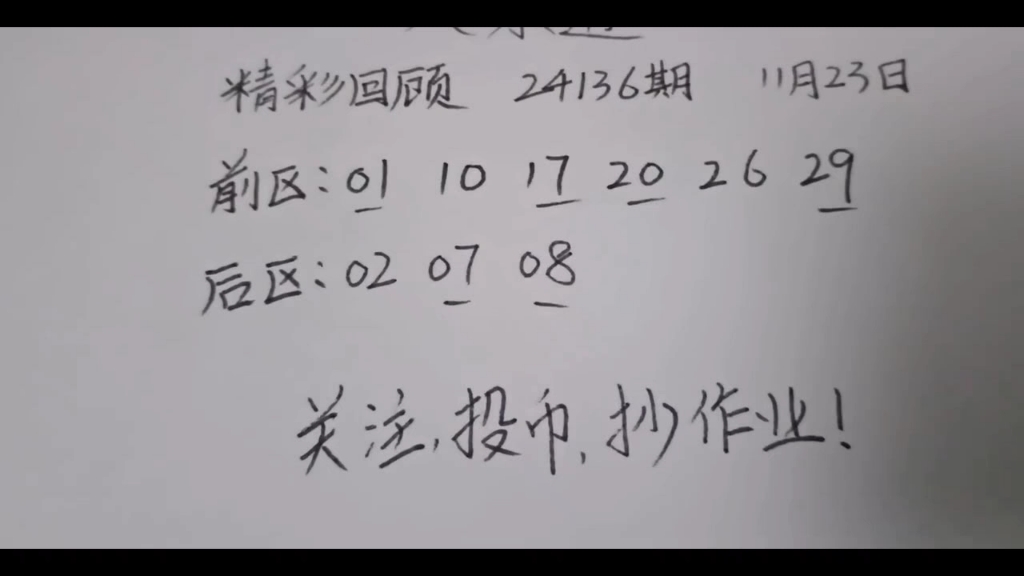 精彩回顾 24136期 11月23日
前区:01 10 17 20 26 29
后区:02 07 08
关注,投币,抄作业!